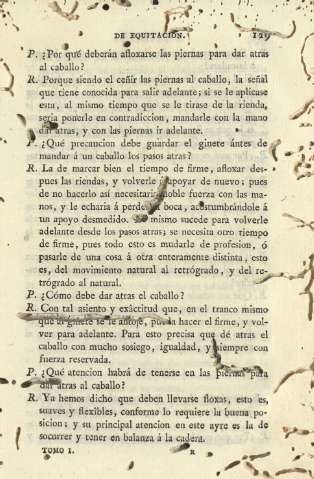 DE EQUITACION. 129
P. ¿Por qué deberán afloxarse las piernas para dar atras
al caballo?
R. Porque siendo el ceñir las piernas al caballo, la señal
que tiene conocida para salir adelante; si se le aplicase
esta, al mismo tiempo que se le tirase de la rienda,
seria ponerle en contradiccion, mandarle con la mano
dar atras, y con las piernas ir adelante.
P. ¿Qué precaucion debe guardar el ginete ántes de
mandar á un caballo los pasos atras?
R. La de marcar bien el tiempo de firme, afloxar des-
pues las riendas, y volverle á apoyar de nuevo; pues
de no hacerlo así necesitaria doble fuerza con las ma-
nos, y le echaria á perder la boca, acostumbrándole á
un apoyo desmedido. Lo mismo sucede para volverle
adelante desde los pasos atras; se necesita otro tiempo
de firme, pues todo esto es mudarle de profesion, ó
pasarle de una cosa á otra enteramente distinta, esto
es, del movimiento natural al retrógrado, y del re-
trógrado al natural.
P. ¿Cómo debe dar atras el caballo?
R. Con tal asiento y exâctitud que, en el tranco mismo
que al ginete se le antoje, pueda hacer el firme, y vol-
ver para adelante. Para esto precisa que dé atras el
caballo con mucho sosiego, igualdad, y siempre con
fuerza reservada.
P. ¿Qué atencion habrá de tenerse en las piernas para
dar atras al caballo?
R. Ya hemos dicho que deben llevarse floxas, esto es,
suaves y flexîbles, conforme lo requiere la buena po-
sicion; y su principal atencion en este ayre es la de
socorrer y tener en balanza á la cadera.
TOMO I. R